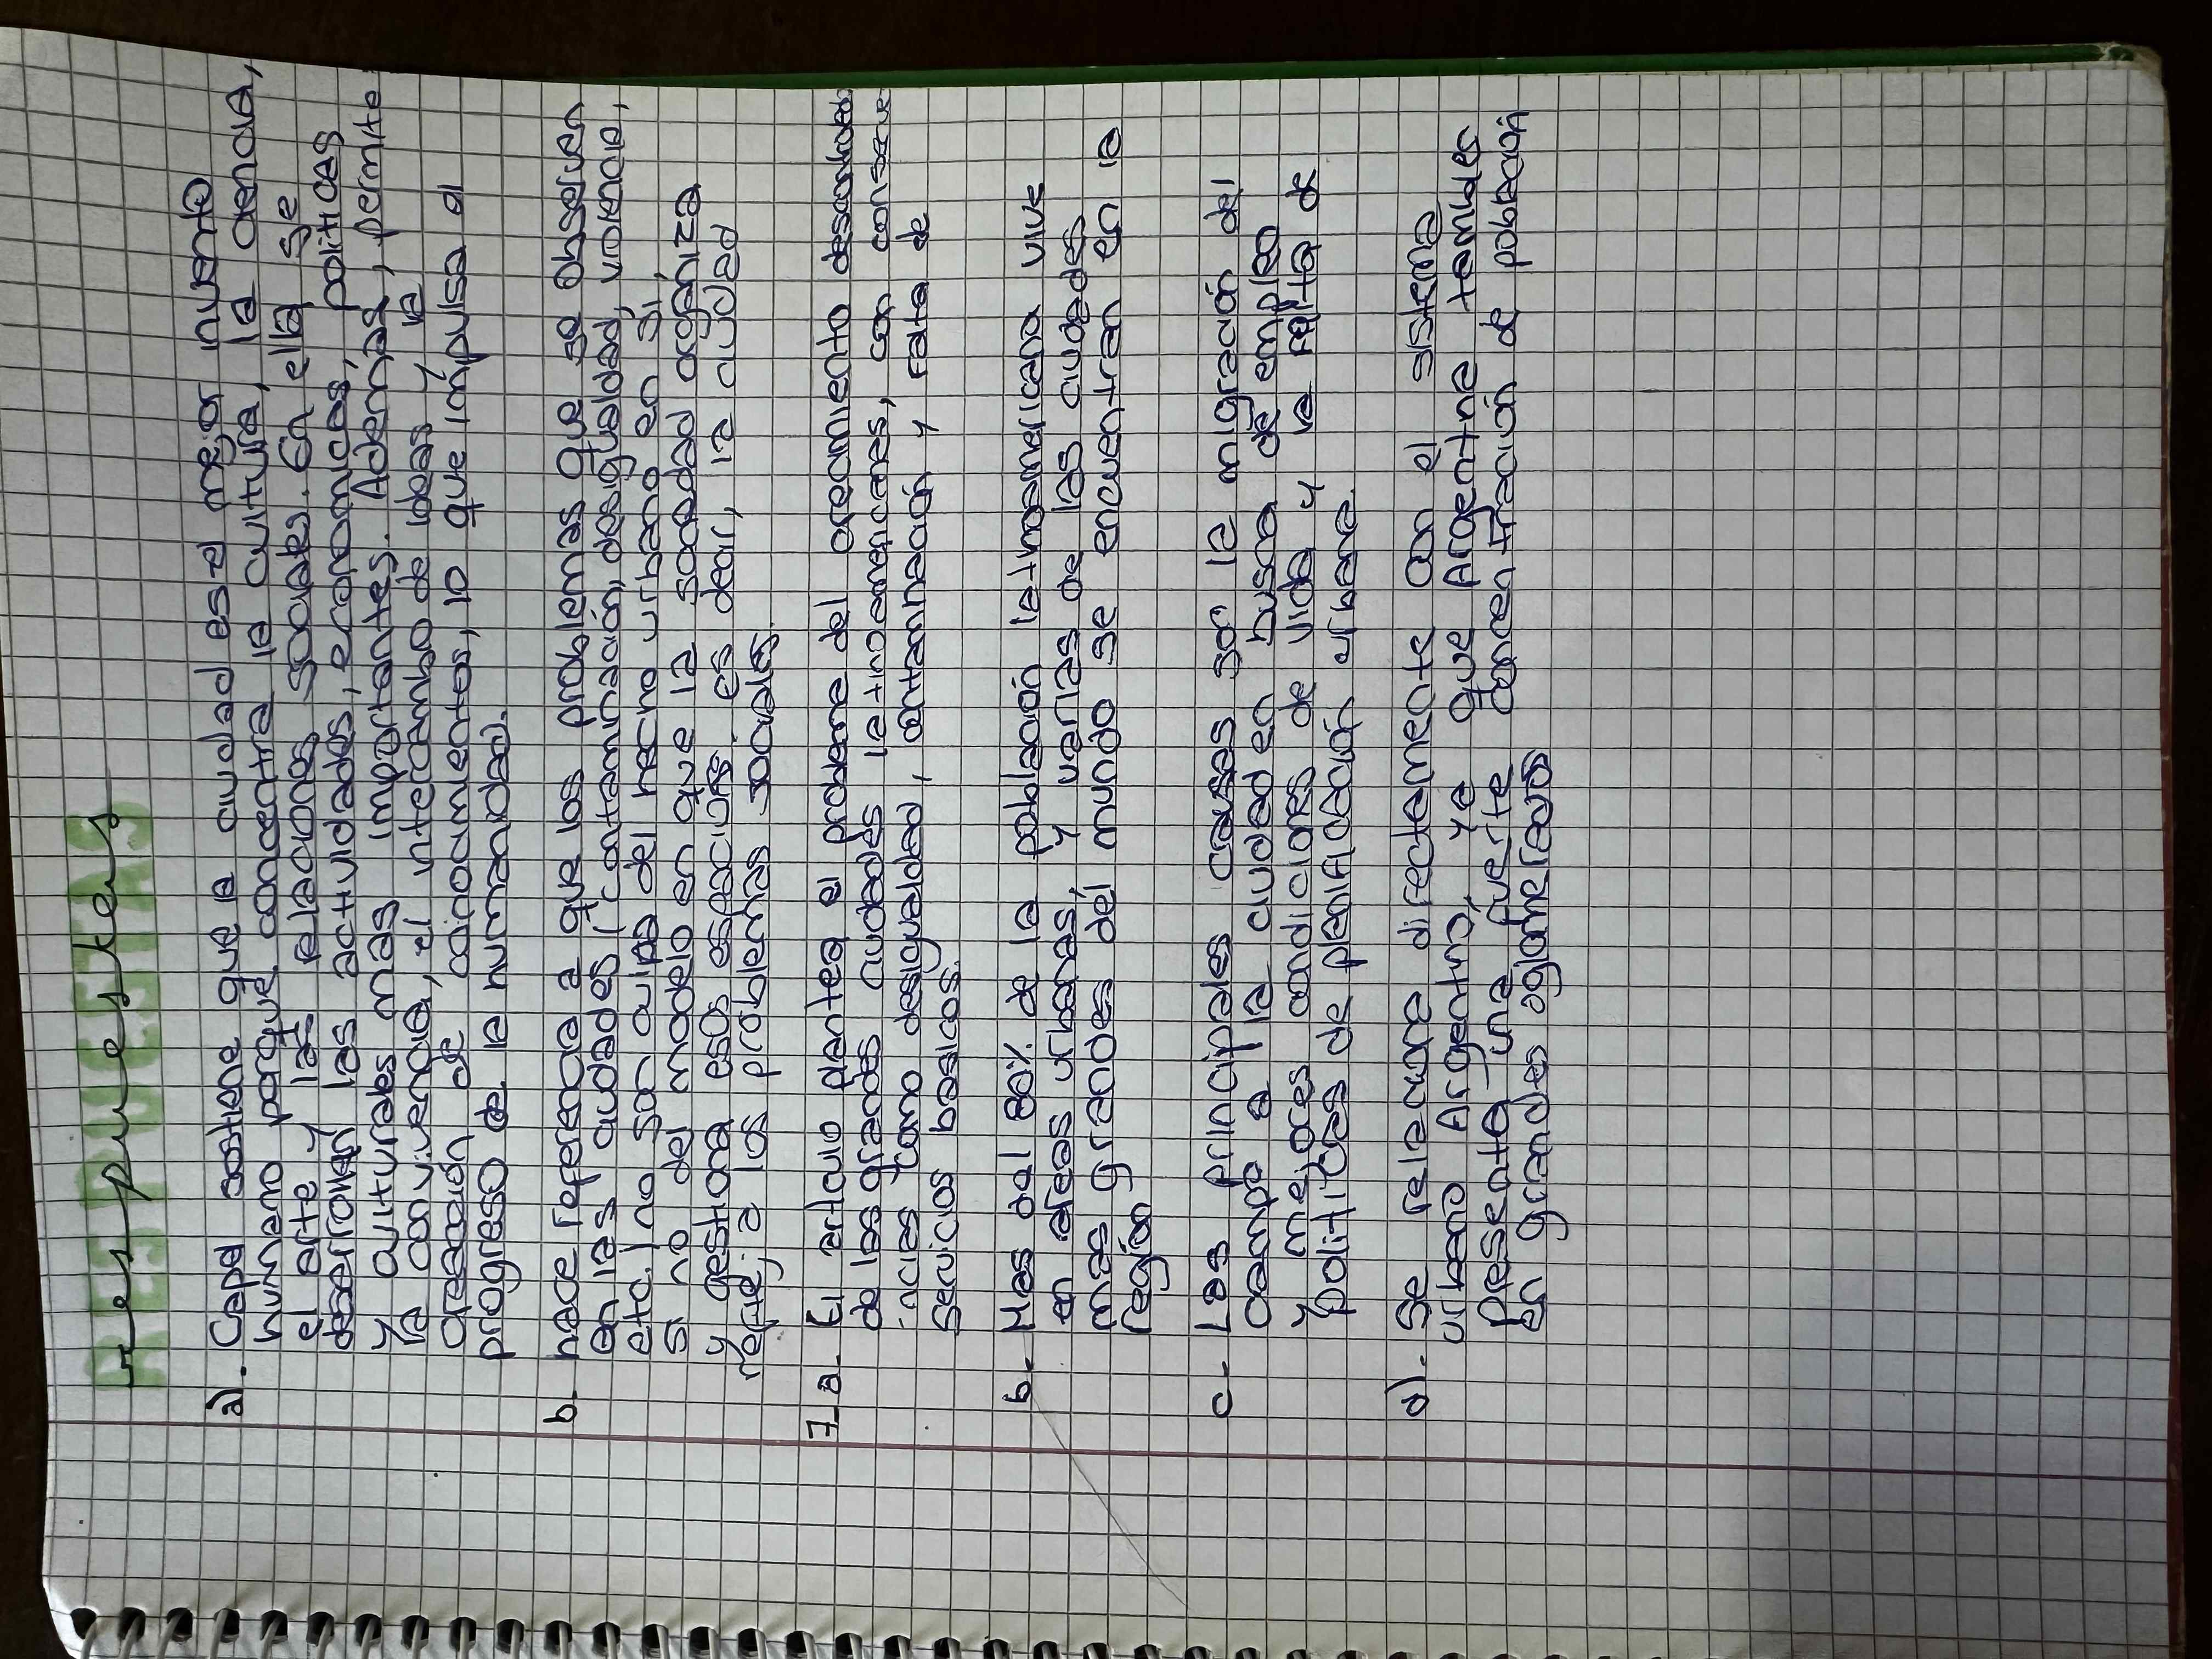 RESPUESTAS
respuestas
a). Capel sostiene que la ciudad es el mejor invento
humano porque concentra la cultura, la ciencia,
el arte y las relaciones sociales. En ella se
desarrollan las actividades, economicas, politicas
y culturales mas importantes. Ademas, permite
la convivencia, el intercambio de ideas y la
creación de conocimientos, lo que impulsa el
progreso de la humanidad.
b. hace referencia a que los problemas que se observan
en las ciudades (contaminación, desigualdad, violencia,
etc.) no son culpa del hecho urbano en sí,
si no del modelo en que la sociedad organiza
y gestiona esos espacios. es decir, la ciudad
refleja los problemas sociales.
7. a. El articulo plantea el problema del crecimiento descontrolado
de las grandes ciudades latinoamericanas, con consecue
ncias como desigualdad, contaminación y falta de
servicios basicos.
b. Mas del 80% de la población latinoamericana vive
en areas urbanas, y varias de las ciudades
mas grandes del mundo se encuentran en la
región
c. Las principales causas son la migración del
campo a la ciudad en busca de empleo
y mejores condiciones de vida y la falta de
politicas de planificación urbana.
d). Se relaciona directamente con el sistema
urbano Argentino, ya que Argentina tambien
presenta una fuerte concentración de población
en grandes aglomerados